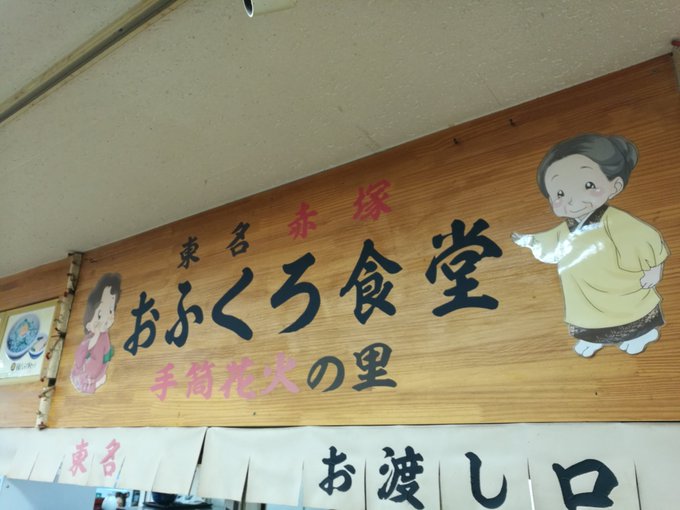 東名 赤塚
おふくろ食堂
手筒花火の里
東名
お渡し口